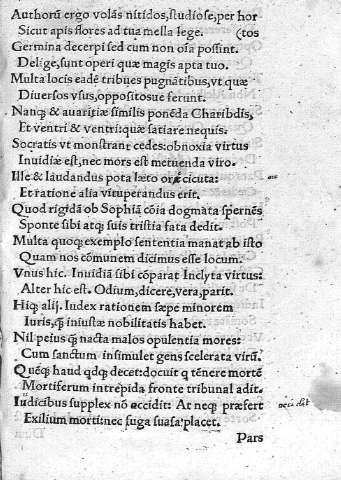 Authorū ergo volās nitidos, ſtudioſe, per hor
Sicut apis flores ad tua mella lege. (tos
Germina decerpi ſed cum non oīa poſſint.
Delige, ſunt operi quæ magis apta tuo.
Multa locis eadē tribues pugnātibus, vt quæ
Diuerſos vſus, oppoſitosue ferunt.
Nanq; & auaritiæ ſimilis ponēda Charibdis,
Et ventri & ventri: quæ ſatiare nequis.
Socratis vt monſtrant cedes: obnoxia virtus
Inuidiæ eſt, nec mors eſt metuenda viro.
Ille & laudandus pota læto ore cicuta:
Et ratione alia vituperandus erit.
Quod rigidā ob Sophiā cōia dogmata ſpernēs
Sponte ſibi atq; ſuis triſtia fata dedit.
Multa quoq; exemplo ſententia manat ab iſto
Quam nos cōmunem dicimus eſſe locum.
Vnus hic. Inuidiā ſibi cōparat Inclyta virtus:
Alter hic eſt. Odium, dicere, vera, parit.
Hiq; alij. Iudex rationem ſæpe minorem
Iuris, q̃ iniuſtæ nobilitatis habet.
Nil peius q̃ nacta malos opulentia mores:
Cum ſanctum inſimulet gens ſcelerata virū.
Quēq̃ haud qd̃q; decet: docuit q tēnere mortē
Mortiferum intrepida fronte tribunal adit.
Iudicibus ſupplex nō accidit: At neq; præfert
Exilium morti: nec fuga ſuaſa placet.
Pars